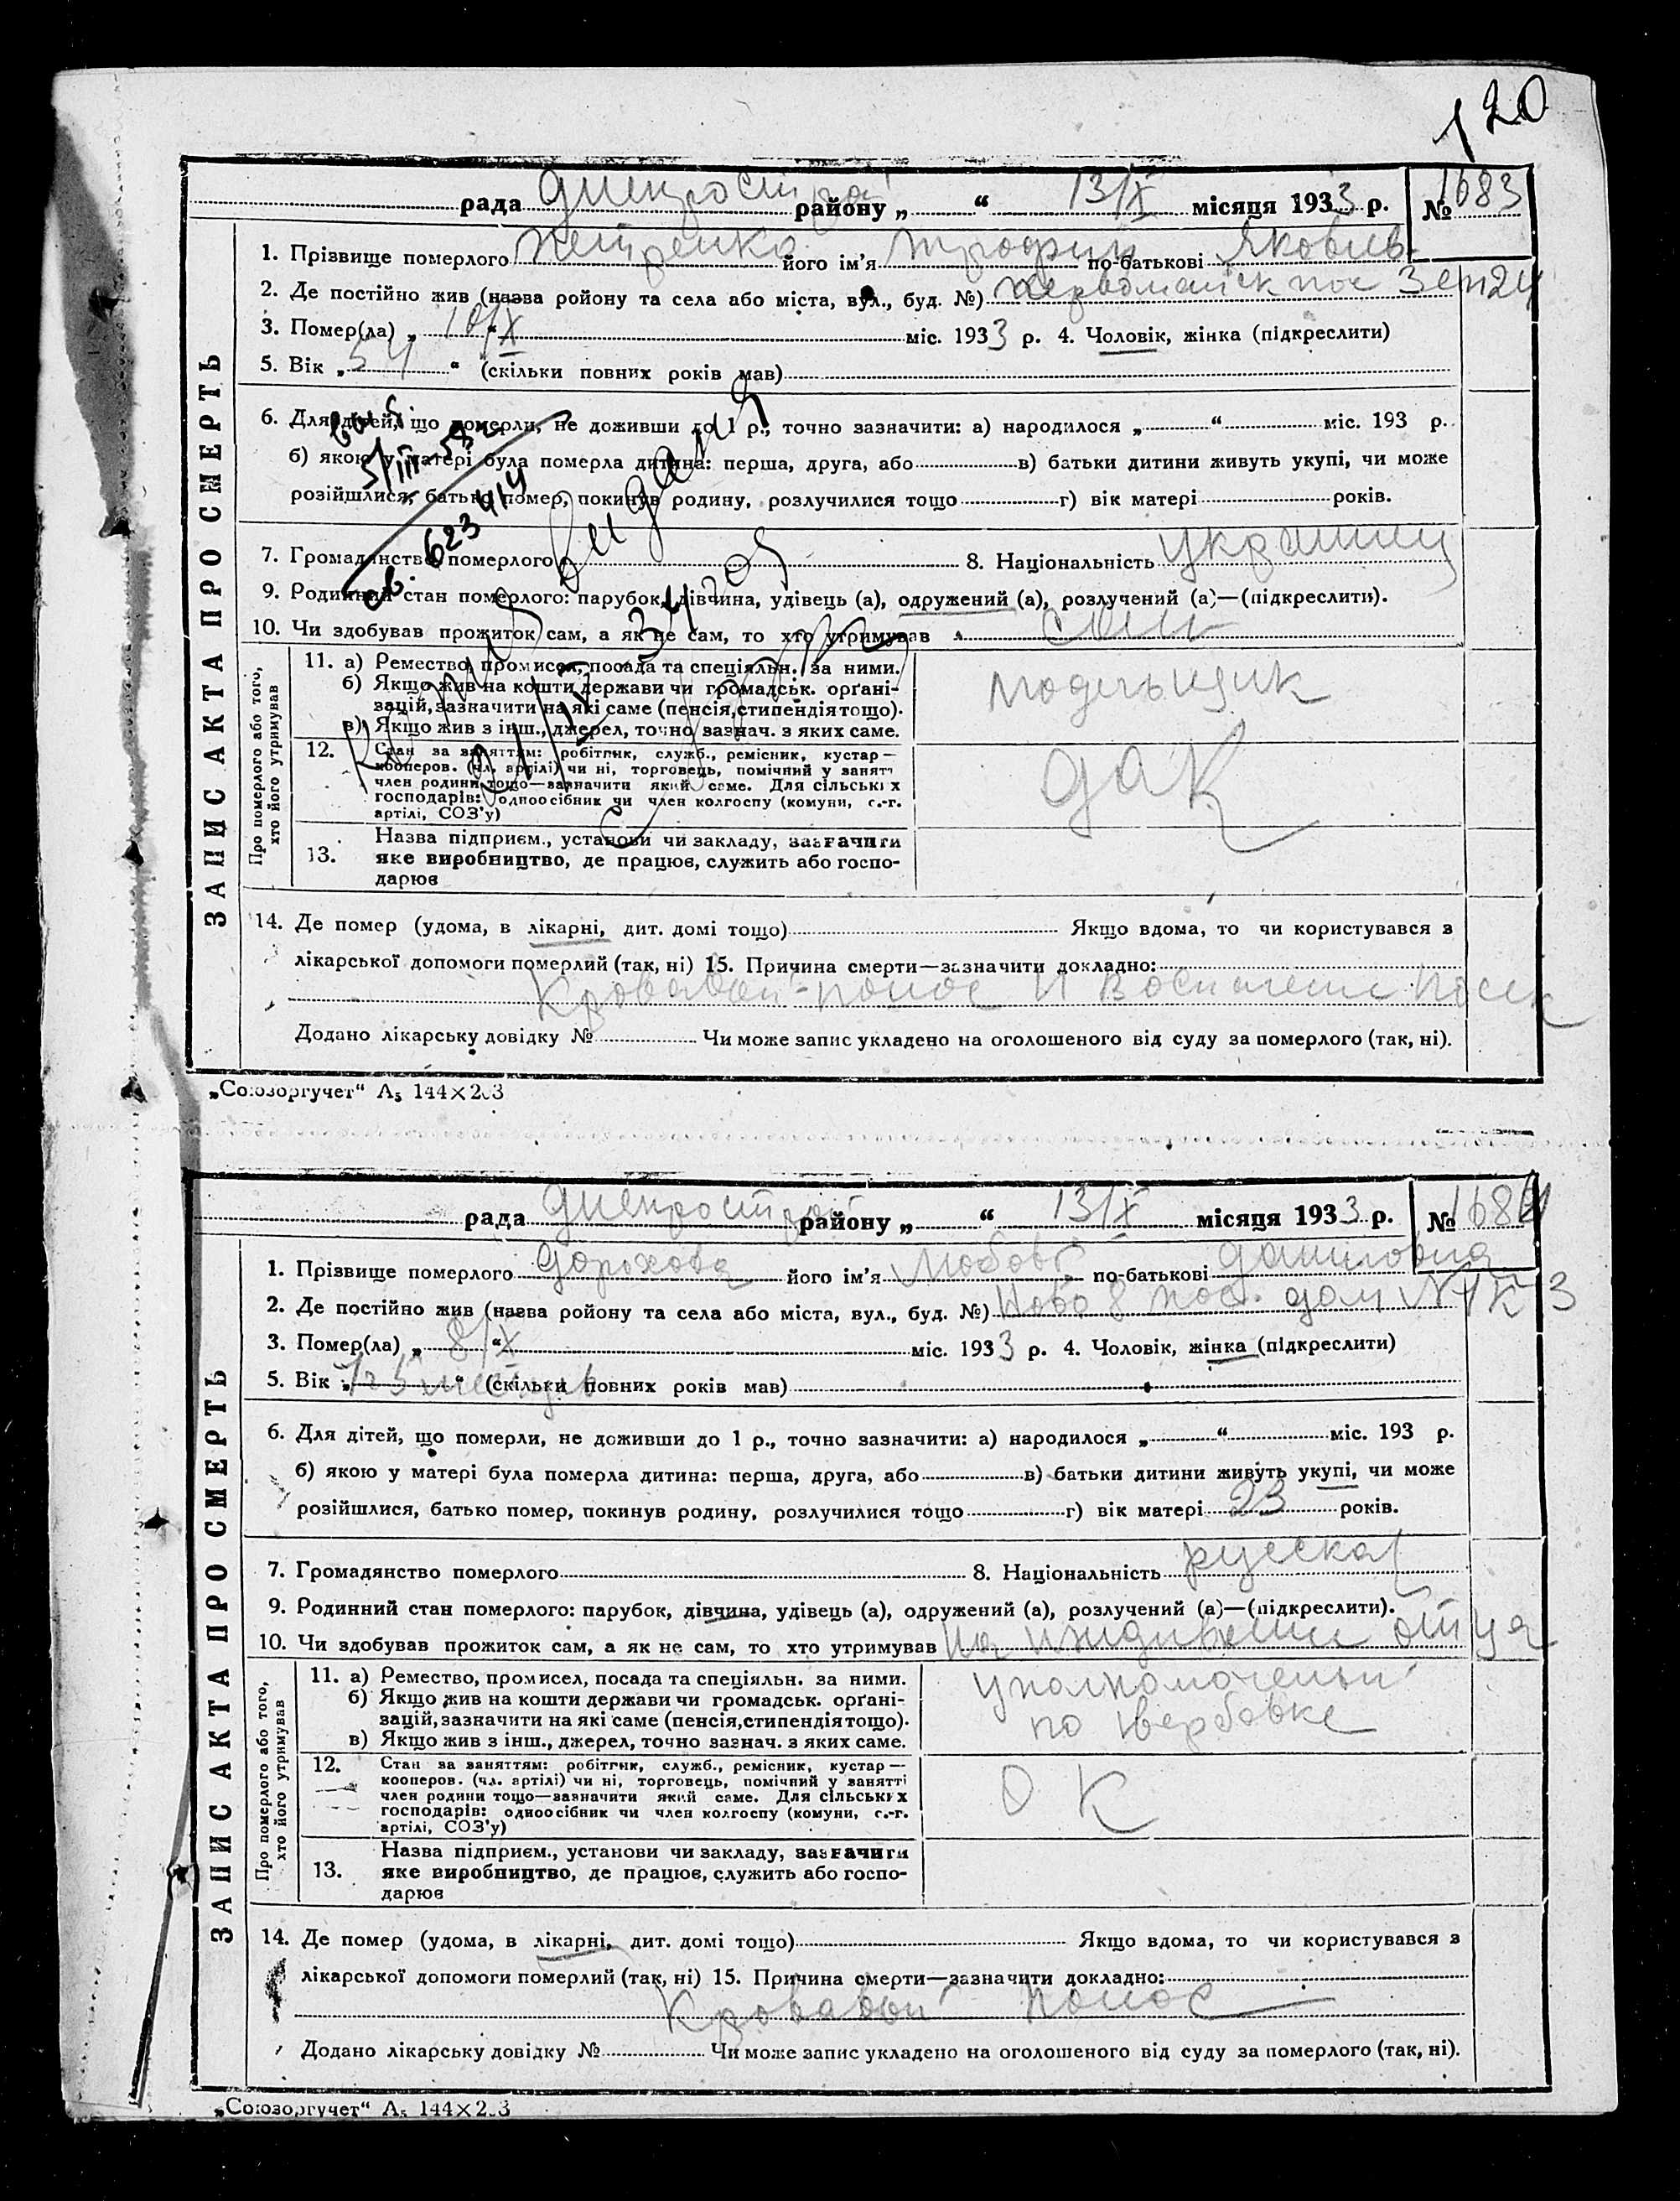 120
рада Днепрострой району „ “ 13/X місяця 1933 р. № 1683
1. Прізвище померлого Петренко його ім'я Трофим по-батькові Яковлев.
2. Де постійно жив (назва ройону та села або міста, вул., буд. №) Первомайск пос
3. Помер(ла) „ 10/X “ міс. 1933 р. 4. Чоловік, жінка (підкреслити)
5. Вік „ 54 “ (скільки повних років мав)
6. Для дітей, що померли, не доживши до 1 р., точно зазначити: а) народилося „ “ міс. 193 р.
б) якою у матері була померла дитина: перша, друга, або в) батьки дитини живуть укупі, чи може
розійшлися, батько помер, покинув родину, розлучилися тощо г) вік матері років.
5/III-53
623414
7. Громадянство померлого 8. Національність украинец
9. Родинний стан померлого: парубок, дівчина, удівець (а), одружений (а), розлучений (а)—(підкреслити).
10. Чи здобував прожиток сам, а як не сам, то хто утримував сам
ЗАПИС АКТА ПРО СМЕРТЬ
Про померлого або того, хто його утримував
11. а) Ремество, промисел, посада та спеціяльн. за ними.
б) Якщо жив на кошти держави чи громадськ. орґані-
зацій, зазначити на які саме (пенсія, стипендія тощо).
в) Якщо жив з інш., джерел, точно зазнач. з яких саме.
модельщик
12. Стан за заняттям: робітник, служб., ремісник, кустар —
кооперов. (чл. артілі) чи ні, торговець, помічний у занятт
член родини тощо—зазначити який саме. Для сільських
господарів: одноосібник чи член колгоспу (комуни, с.-г.
артілі, СОЗ'у)
13. Назва підприєм., установи чи закладу, зазначити
яке виробництво, де працює, служить або госпо-
дарює
14. Де помер (удома, в лікарні, дит. домі тощо) Якщо вдома, то чи користувався з
лікарської допомоги померлий (так, ні) 15. Причина смерти—зазначити докладно:
Кровавый понос и воспаление почек
Додано лікарську довідку № Чи може запис укладено на оголошеного від суду за померлого (так, ні).
„Союзоргучет“ А5 144×203
рада Днепрострой району „ “ 13/X місяця 1933 р. № 1684
1. Прізвище померлого Дорохова його ім'я Любовь по-батькові Даниловна
2. Де постійно жив (назва ройону та села або міста, вул., буд. №) Ново 8 пос. дом №1 К 3
3. Помер(ла) „ 8/X “ міс. 1933 р. 4. Чоловік, жінка (підкреслити)
5. Вік „ “ (скільки повних років мав)
6. Для дітей, що померли, не доживши до 1 р., точно зазначити: а) народилося „ “ міс. 193 р.
б) якою у матері була померла дитина: перша, друга, або в) батьки дитини живуть укупі, чи може
розійшлися, батько помер, покинув родину, розлучилися тощо г) вік матері 23 років.
7. Громадянство померлого 8. Національність русская
9. Родинний стан померлого: парубок, дівчина, удівець (а), одружений (а), розлучений (а)—(підкреслити).
10. Чи здобував прожиток сам, а як не сам, то хто утримував на иждивении отца
ЗАПИС АКТА ПРО СМЕРТЬ
Про померлого або того, хто його утримував
11. а) Ремество, промисел, посада та спеціяльн. за ними.
б) Якщо жив на кошти держави чи громадськ. орґані-
зацій, зазначити на які саме (пенсія, стипендія тощо).
в) Якщо жив з інш., джерел, точно зазнач. з яких саме.
уполномоченый
по вербовке
12. Стан за заняттям: робітник, служб., ремісник, кустар —
кооперов. (чл. артілі) чи ні, торговець, помічний у занятті
член родини тощо—зазначити який саме. Для сільських
господарів: одноосібник чи член колгоспу (комуни, с.-г.
артілі, СОЗ'у)
О К
13. Назва підприєм., установи чи закладу, зазначити
яке виробництво, де працює, служить або госпо-
дарює
14. Де помер (удома, в лікарні, дит. домі тощо) Якщо вдома, то чи користувався з
лікарської допомоги померлий (так, ні) 15. Причина смерти—зазначити докладно:
Кровавый понос
Додано лікарську довідку № Чи може запис укладено на оголошеного від суду за померлого (так, ні).
„Союзоргучет“ А5 144×203